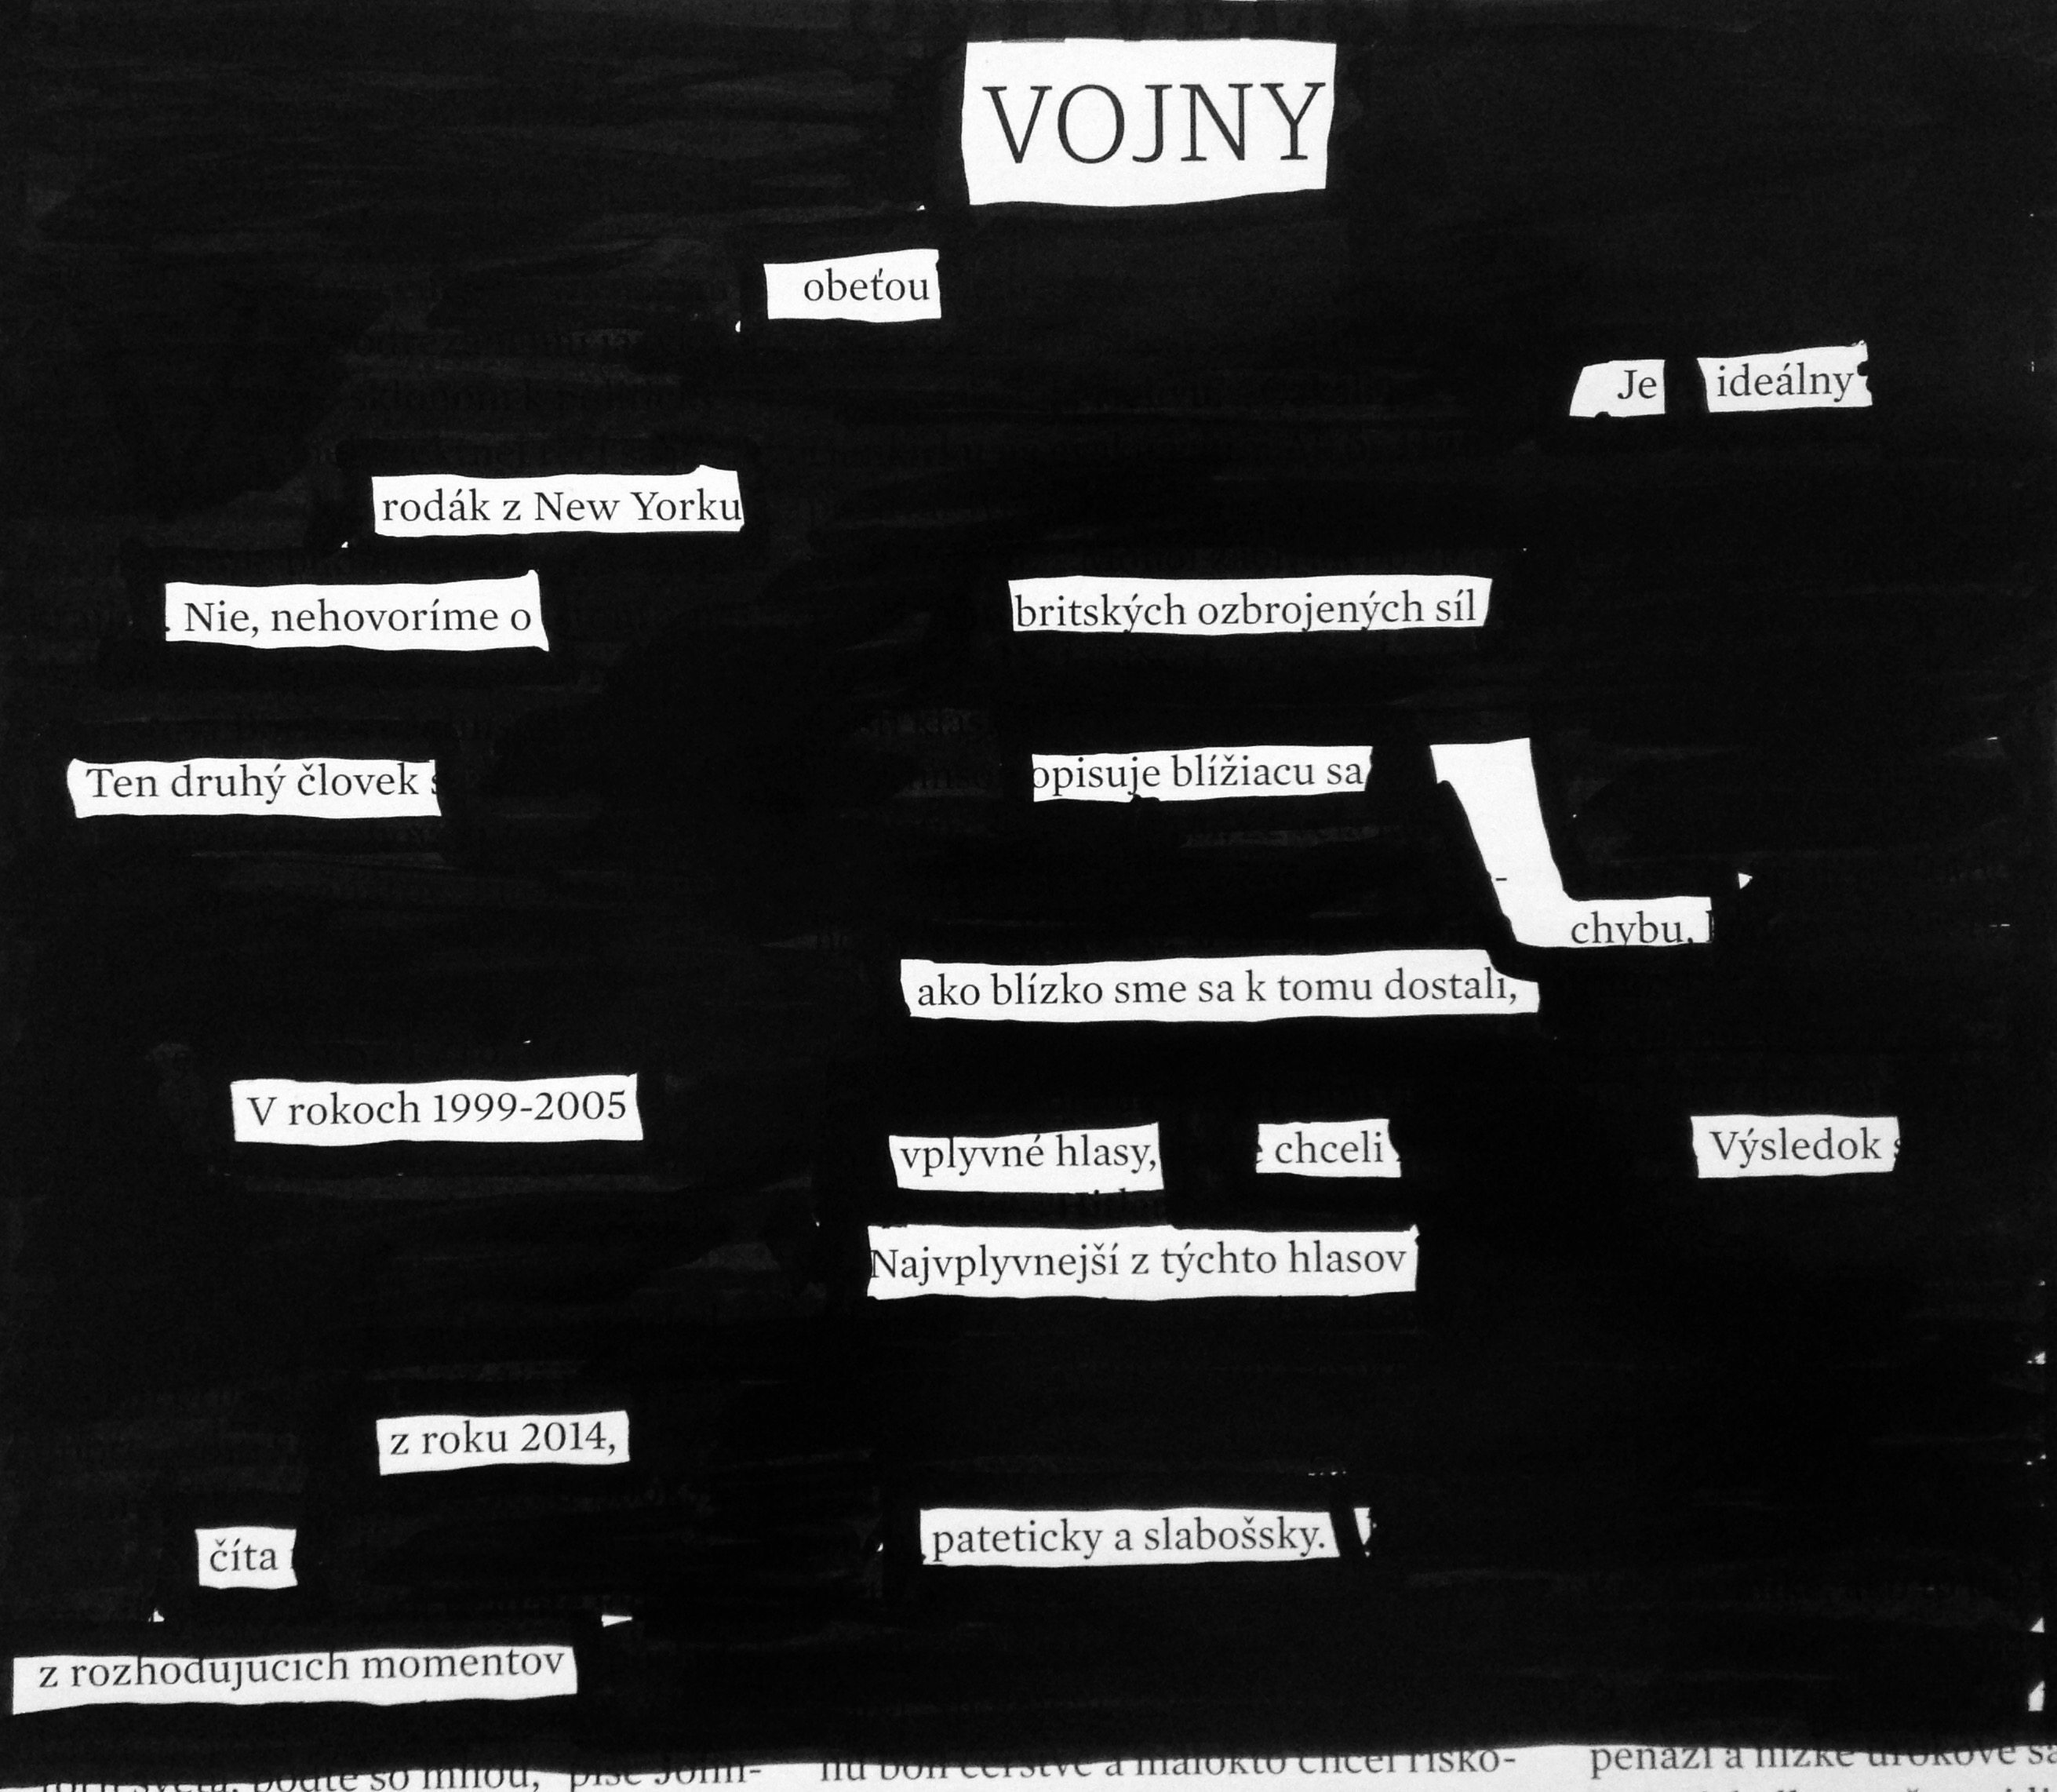 VOJNY
obeťou
Je ideálny
rodák z New Yorku
Nie, nehovoríme o
britských ozbrojených síl
Ten druhý človek
opisuje blížiacu sa
chybu.
ako blízko sme sa k tomu dostali,
V rokoch 1999-2005
vplyvné hlasy, chceli
Výsledok
Najvplyvnejší z týchto hlasov
z roku 2014,
pateticky a slabošsky.
číta
z rozhodujúcich momentov
so mnou, píše John-
nu boli čerstvé a málokto chcel risko-
peňazí a nízke úrokové